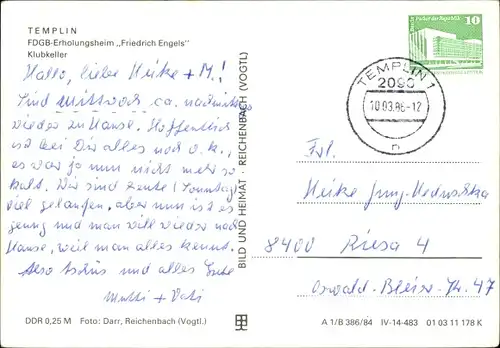 TEMPLIN
FDGB-Erholungsheim „Friedrich Engels"
Klubkeller
Hallo, liebe Heike + M.!
Sind Mittwoch ca. nachmittags
wieder zu Hause. Hoffentlich
ist bei Dir alles noch o.k.,
es war ja nun nicht mehr so
kalt. Wir sind heute (Sonntag)
viel gelaufen, aber nun ist es
genug und man will wieder nach
Hause, weil man alles kennt.
Also tschüs und alles Gute
Mutti + Vati
DDR 0,25 M Foto: Darr, Reichenbach (Vogtl.)
BILD UND HEIMAT · REICHENBACH (VOGTL)
10
TEMPLIN 1
2090
10.03.86-12
n
Frl.
Heike
8400 Riesa 4
Oswald-
47
A 1/B 386/84 IV-14-483 01 03 11 178 K